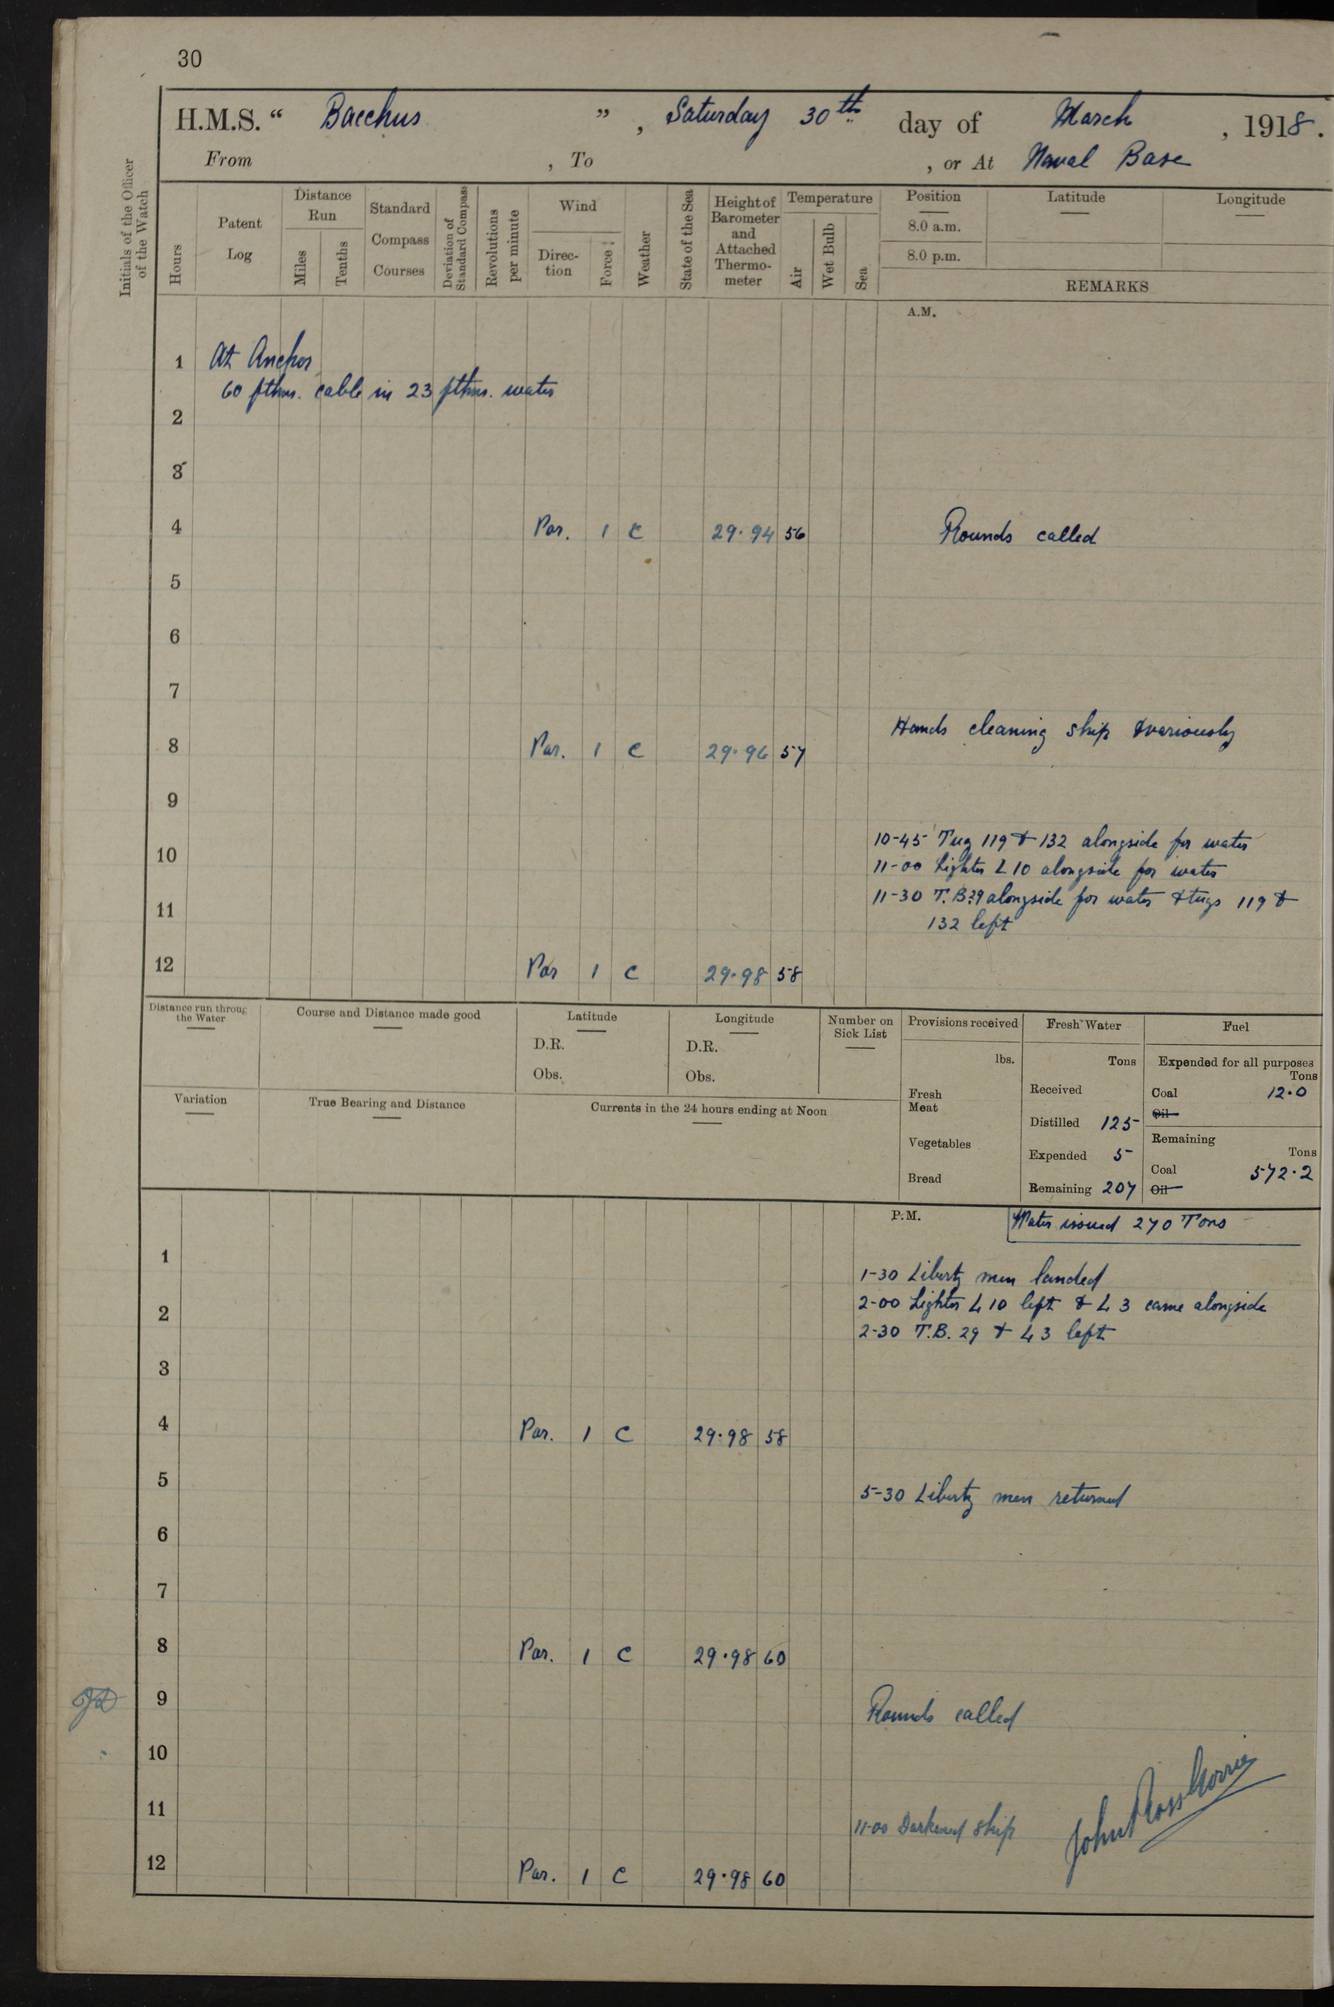 30
H.M.S. “ Bacchus ” , Saturday 30th day of March , 1918.
From , To , or At Naval Base
Initials of the Officer of the Watch
Hours
Patent Log
Distance Run
Miles
Tenths
Standard Compass Courses
Deviation of Standard Compass
Revolutions per minute
Wind
Direc-tion
Force
Weather
State of the Sea
Height of Barometer and Attached Thermo-meter
Temperature
Air
Wet Bulb
Sea
Position
8.0 a.m.
8.0 p.m.
Latitude
Longitude
REMARKS
A.M.
1 At Anchor
60 fthms. cable in 23 fthms. water
2
3
4 Var. 1 C 29.94 56 Rounds called
5
6
7
Hands cleaning ship & variously
8 Var. 1 C 29.96 57
9
10-45 Tug 119 & 132 alongside for water
10
11-00 Lighter L 10 alongside for water
11-30 T.B. 29 alongside for water & tugs 119 &
11
132 left
12 Var 1 C 29.98 58
Distance run throug the Water
Course and Distance made good
Latitude
D.R.
Obs.
Longitude
D.R.
Obs.
Number on Sick List
Provisions received
lbs.
Fresh Meat
Vegetables
Bread
Fresh Water
Tons
Received
Distilled 125
Expended 5
Remaining 207
Fuel
Expended for all purposes
Tons
Coal 12.0
Oil
Remaining
Tons
Coal 572.2
Oil
Variation
True Bearing and Distance
Currents in the 24 hours ending at Noon
P.M.
Water issued 270 Tons
1
1-30 Liberty men landed
2-00 Lighter L 10 left & L 3 came alongside
2
2-30 T.B. 29 & L 3 left
3
4 Var. 1 C 29.98 58
5
5-30 Liberty men returned
6
7
8 Var. 1 C 29.98 60
9
Rounds called
10
11
11-00 Darkened ship
John Ross Gorrie
12 Var. 1 C 29.98 60